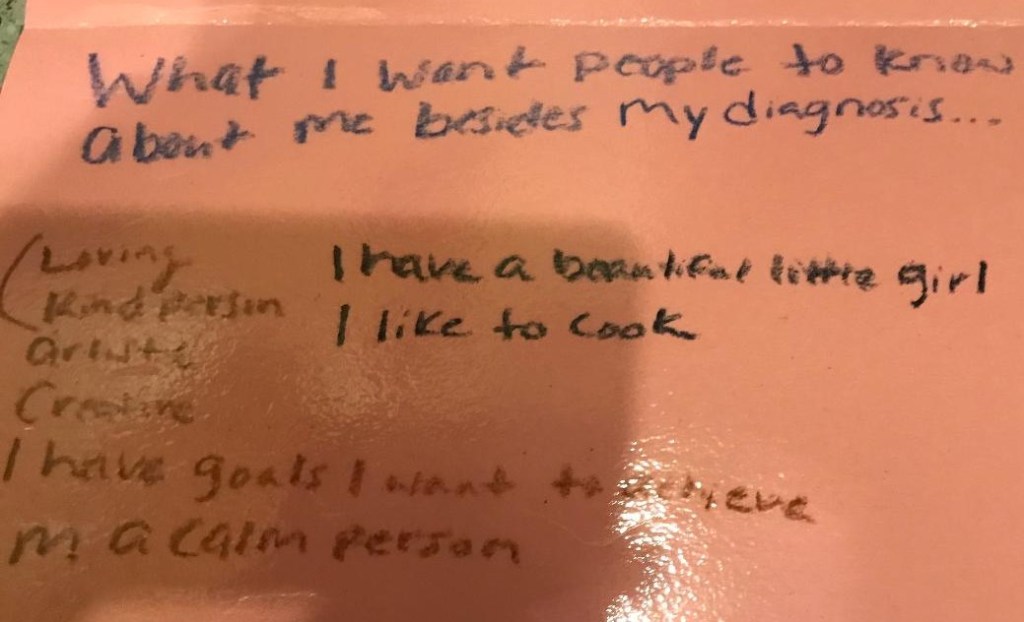 What I want people to know
about me besides my diagnosis...
(Loving
Kind person
artistic
Creative
I have a beautiful little girl
I like to cook
I have goals I want to achieve
m a calm person